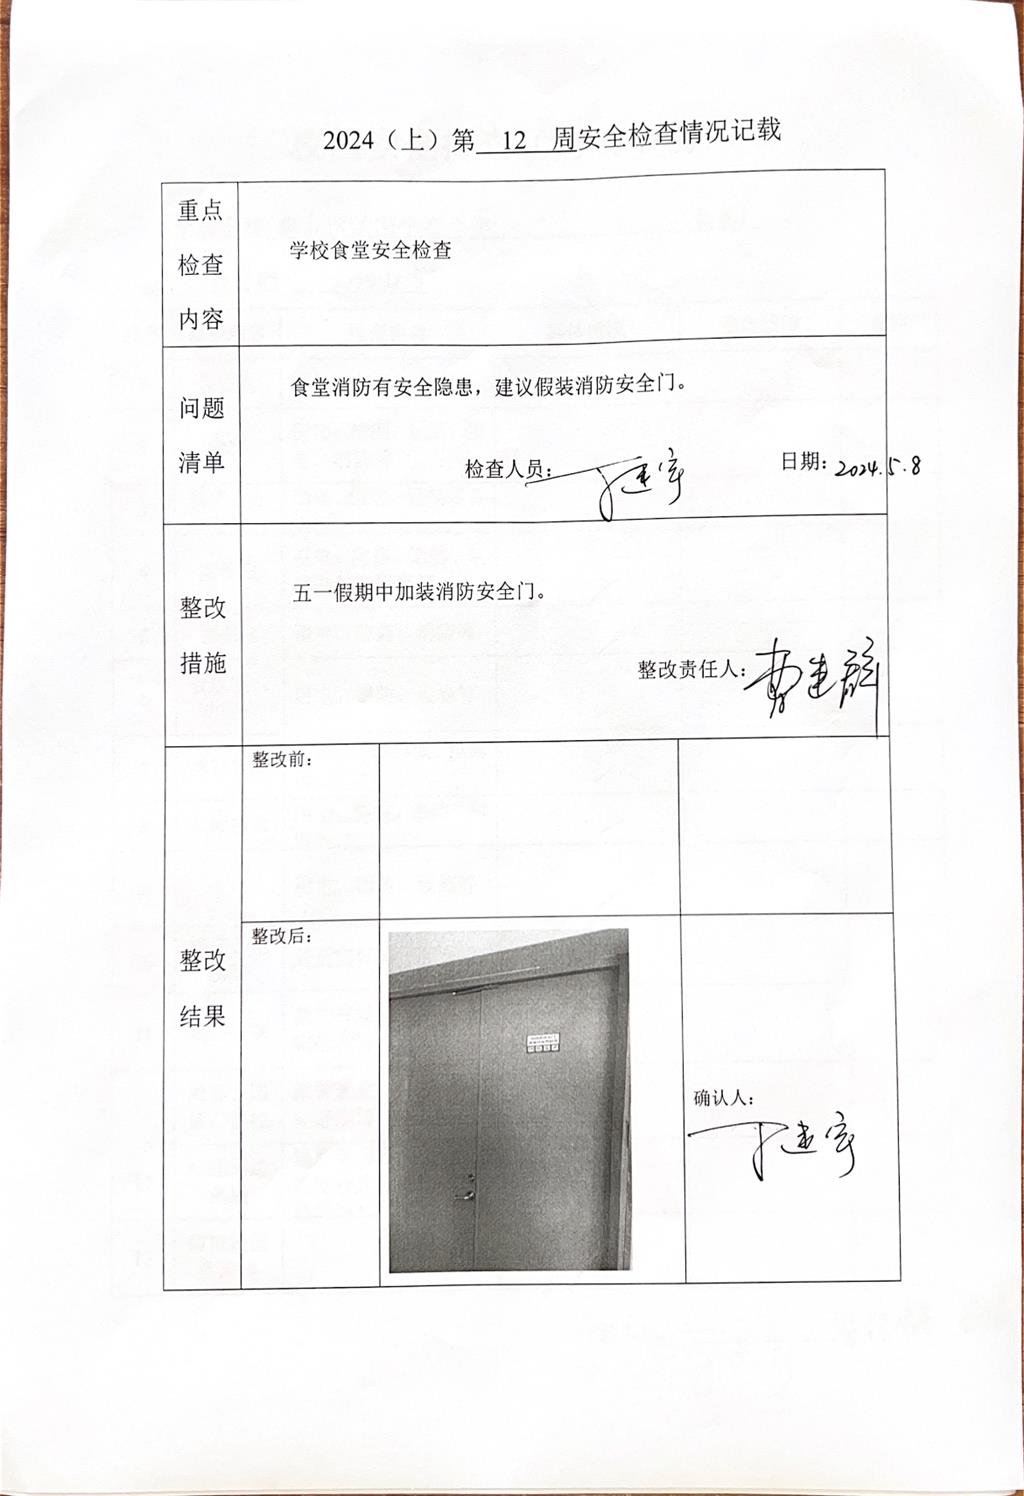 2024（上）第 12 周安全检查情况记载
重点
检查
内容
学校食堂安全检查
问题
清单
食堂消防有安全隐患，建议假装消防安全门。
检查人员：
日期：2024.5.8
整改
措施
五一假期中加装消防安全门。
整改责任人：
整改
结果
整改前：
整改后：
确认人：